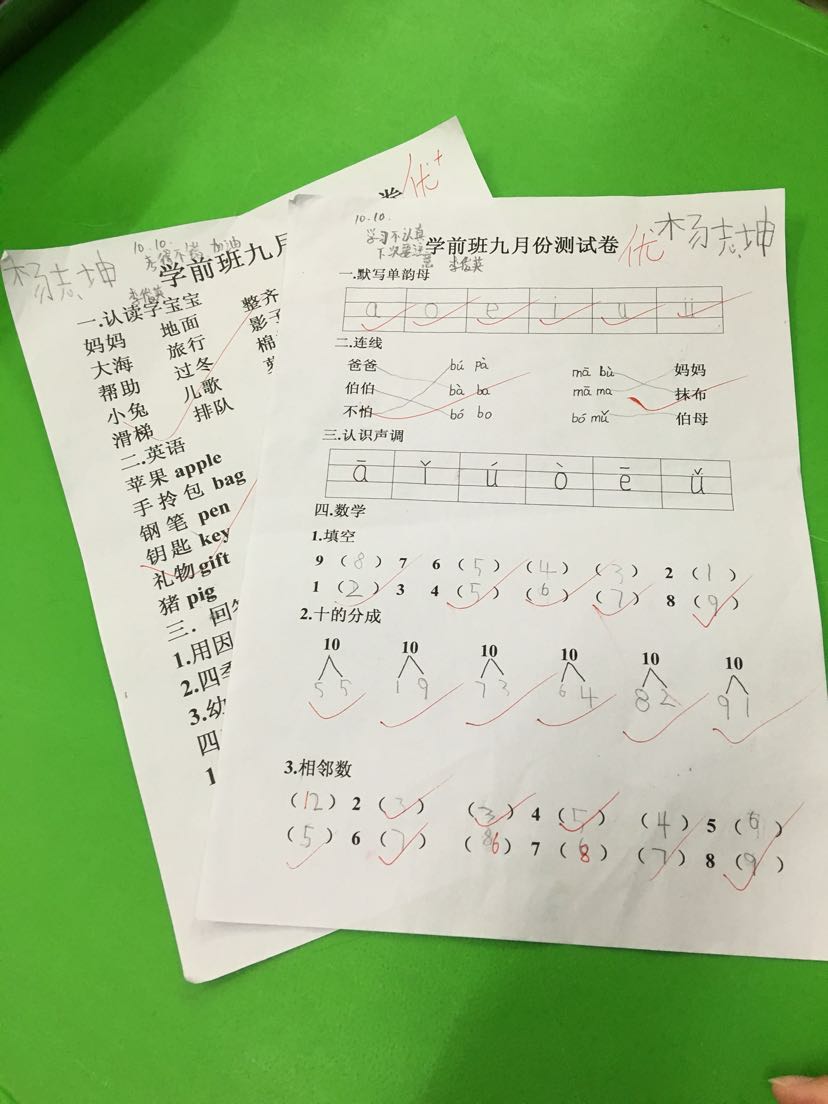 优+
杨志坤
10.10.
考得不错 加油
学前班九月
李俊英
一.认读字宝宝 整齐
妈妈 地面 影子
大海 旅行 棉
帮助 过冬
小兔 儿歌
滑梯 排队
二.英语
苹果 apple
手拎包 bag
钢笔 pen
钥匙 key
礼物 gift
猪 pig
三.回答
1.用因
2.四季
3.幼
四
1
10.10.
学习不认真
学前班九月份测试卷 优 杨志坤
李俊英
一.默写单韵母
a o e i u ü
二.连线
爸爸 bú pà mā bù 妈妈
伯伯 bà ba mā ma 抹布
不怕 bó bo bó mǔ 伯母
三.认识声调
ā ǐ ú ò ē ǚ
四.数学
1.填空
9 (8) 7 6 (5) (4) (3) 2 (1)
1 (2) 3 4 (5) (6) (7) 8 (9)
2.十的分成
10 10 10 10 10 10
5 5 1 9 7 3 6 4 8 2 9 1
3.相邻数
(12) 2 (3) (3) 4 (5) (4) 5 (6)
(5) 6 (7) (6) 7 (8) (7) 8 (9)